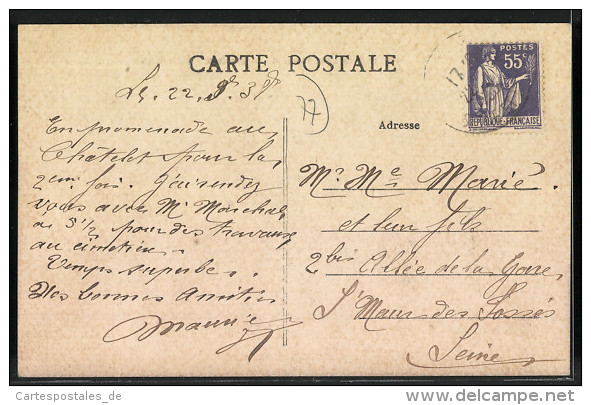 CARTE POSTALE
POSTES
55c
RÉPUBLIQUE FRANÇAISE
17
Le 22.
77
Adresse
En promenade au
Châtelet pour la
2eme fois. J'ai rendez
vous avec Mr Marchal
a 5 1/2 pour des travaux
au cimetière.
Temps superbe.
Mes bonnes Amitiés
Maurice
Mr. Me Marié.
et leur fils
2 bis Allée de la Gare,
St Maur des Fossés
Seine
Cartespostales_de
www.delcampe.net